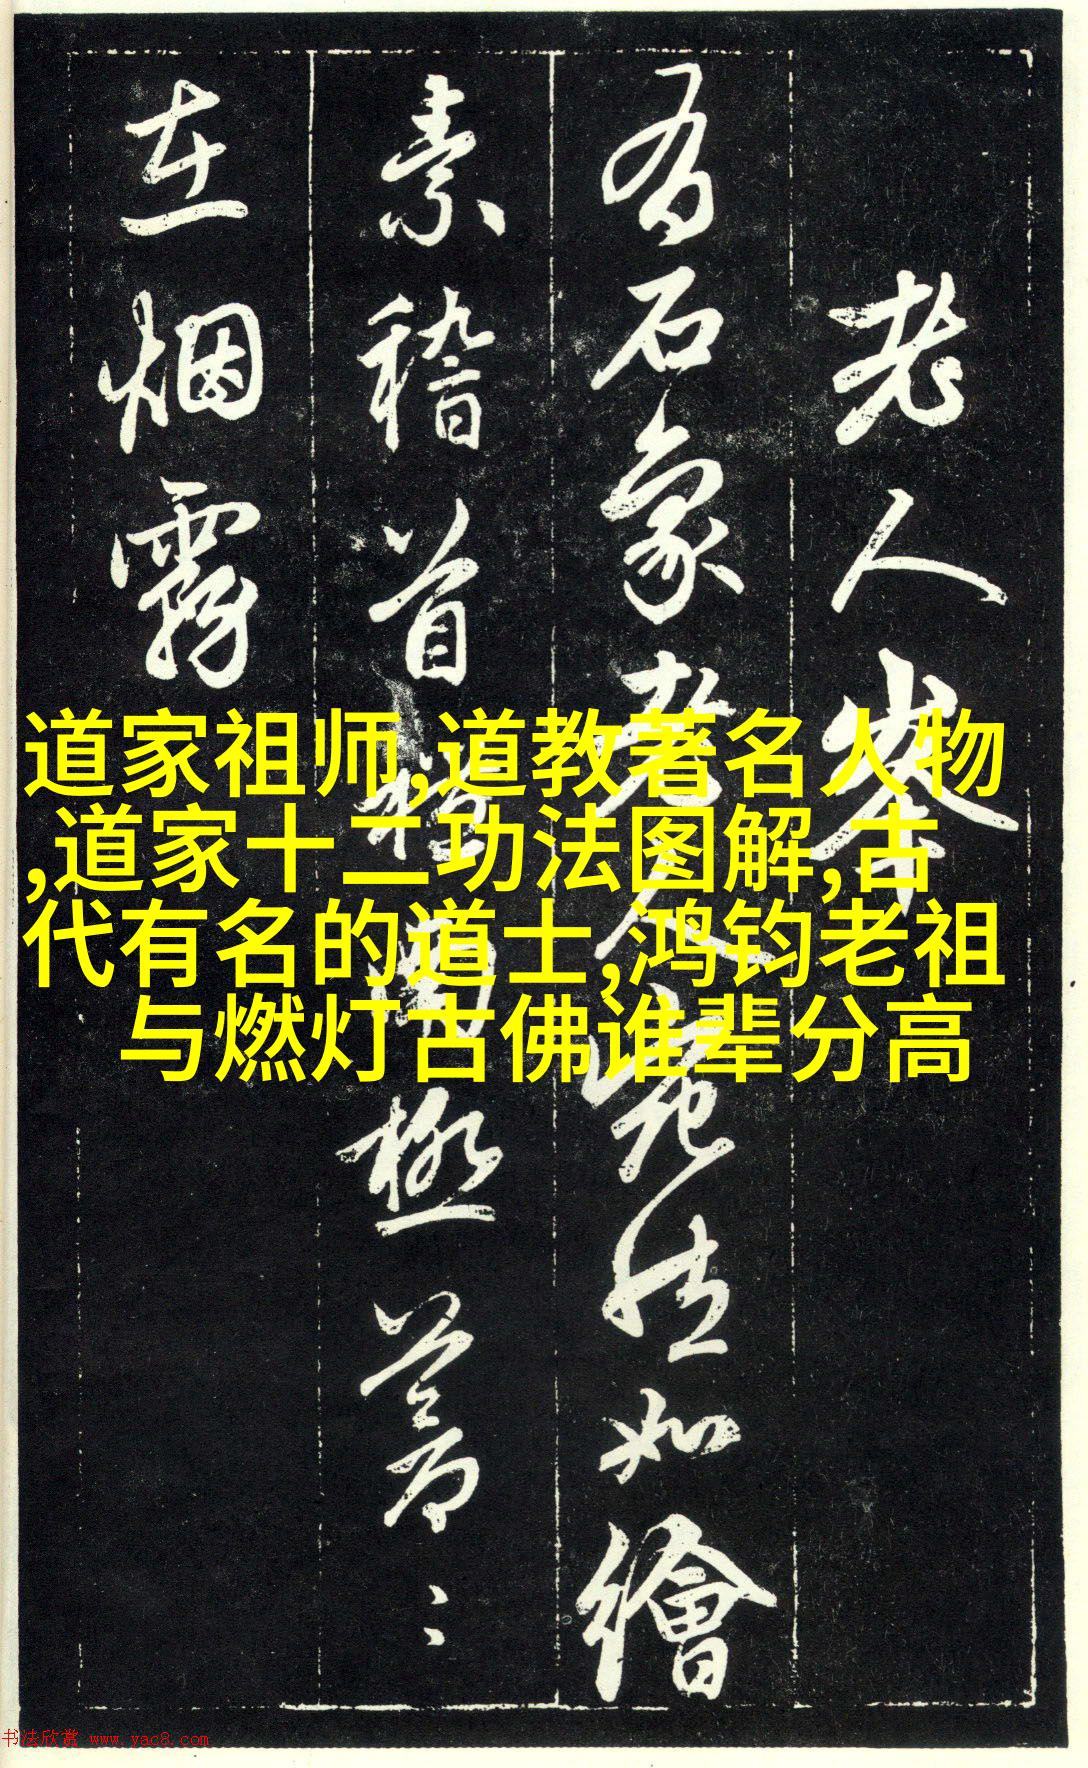 老人峯
有石象老人宛然如繪
素稽首極蒼〻
在烟霧
道家祖师,道教著名人物
,道家十二功法图解,古
代有名的道士,鸿钧老祖
与燃灯古佛谁辈分高
书法欣赏 www.yac8.com